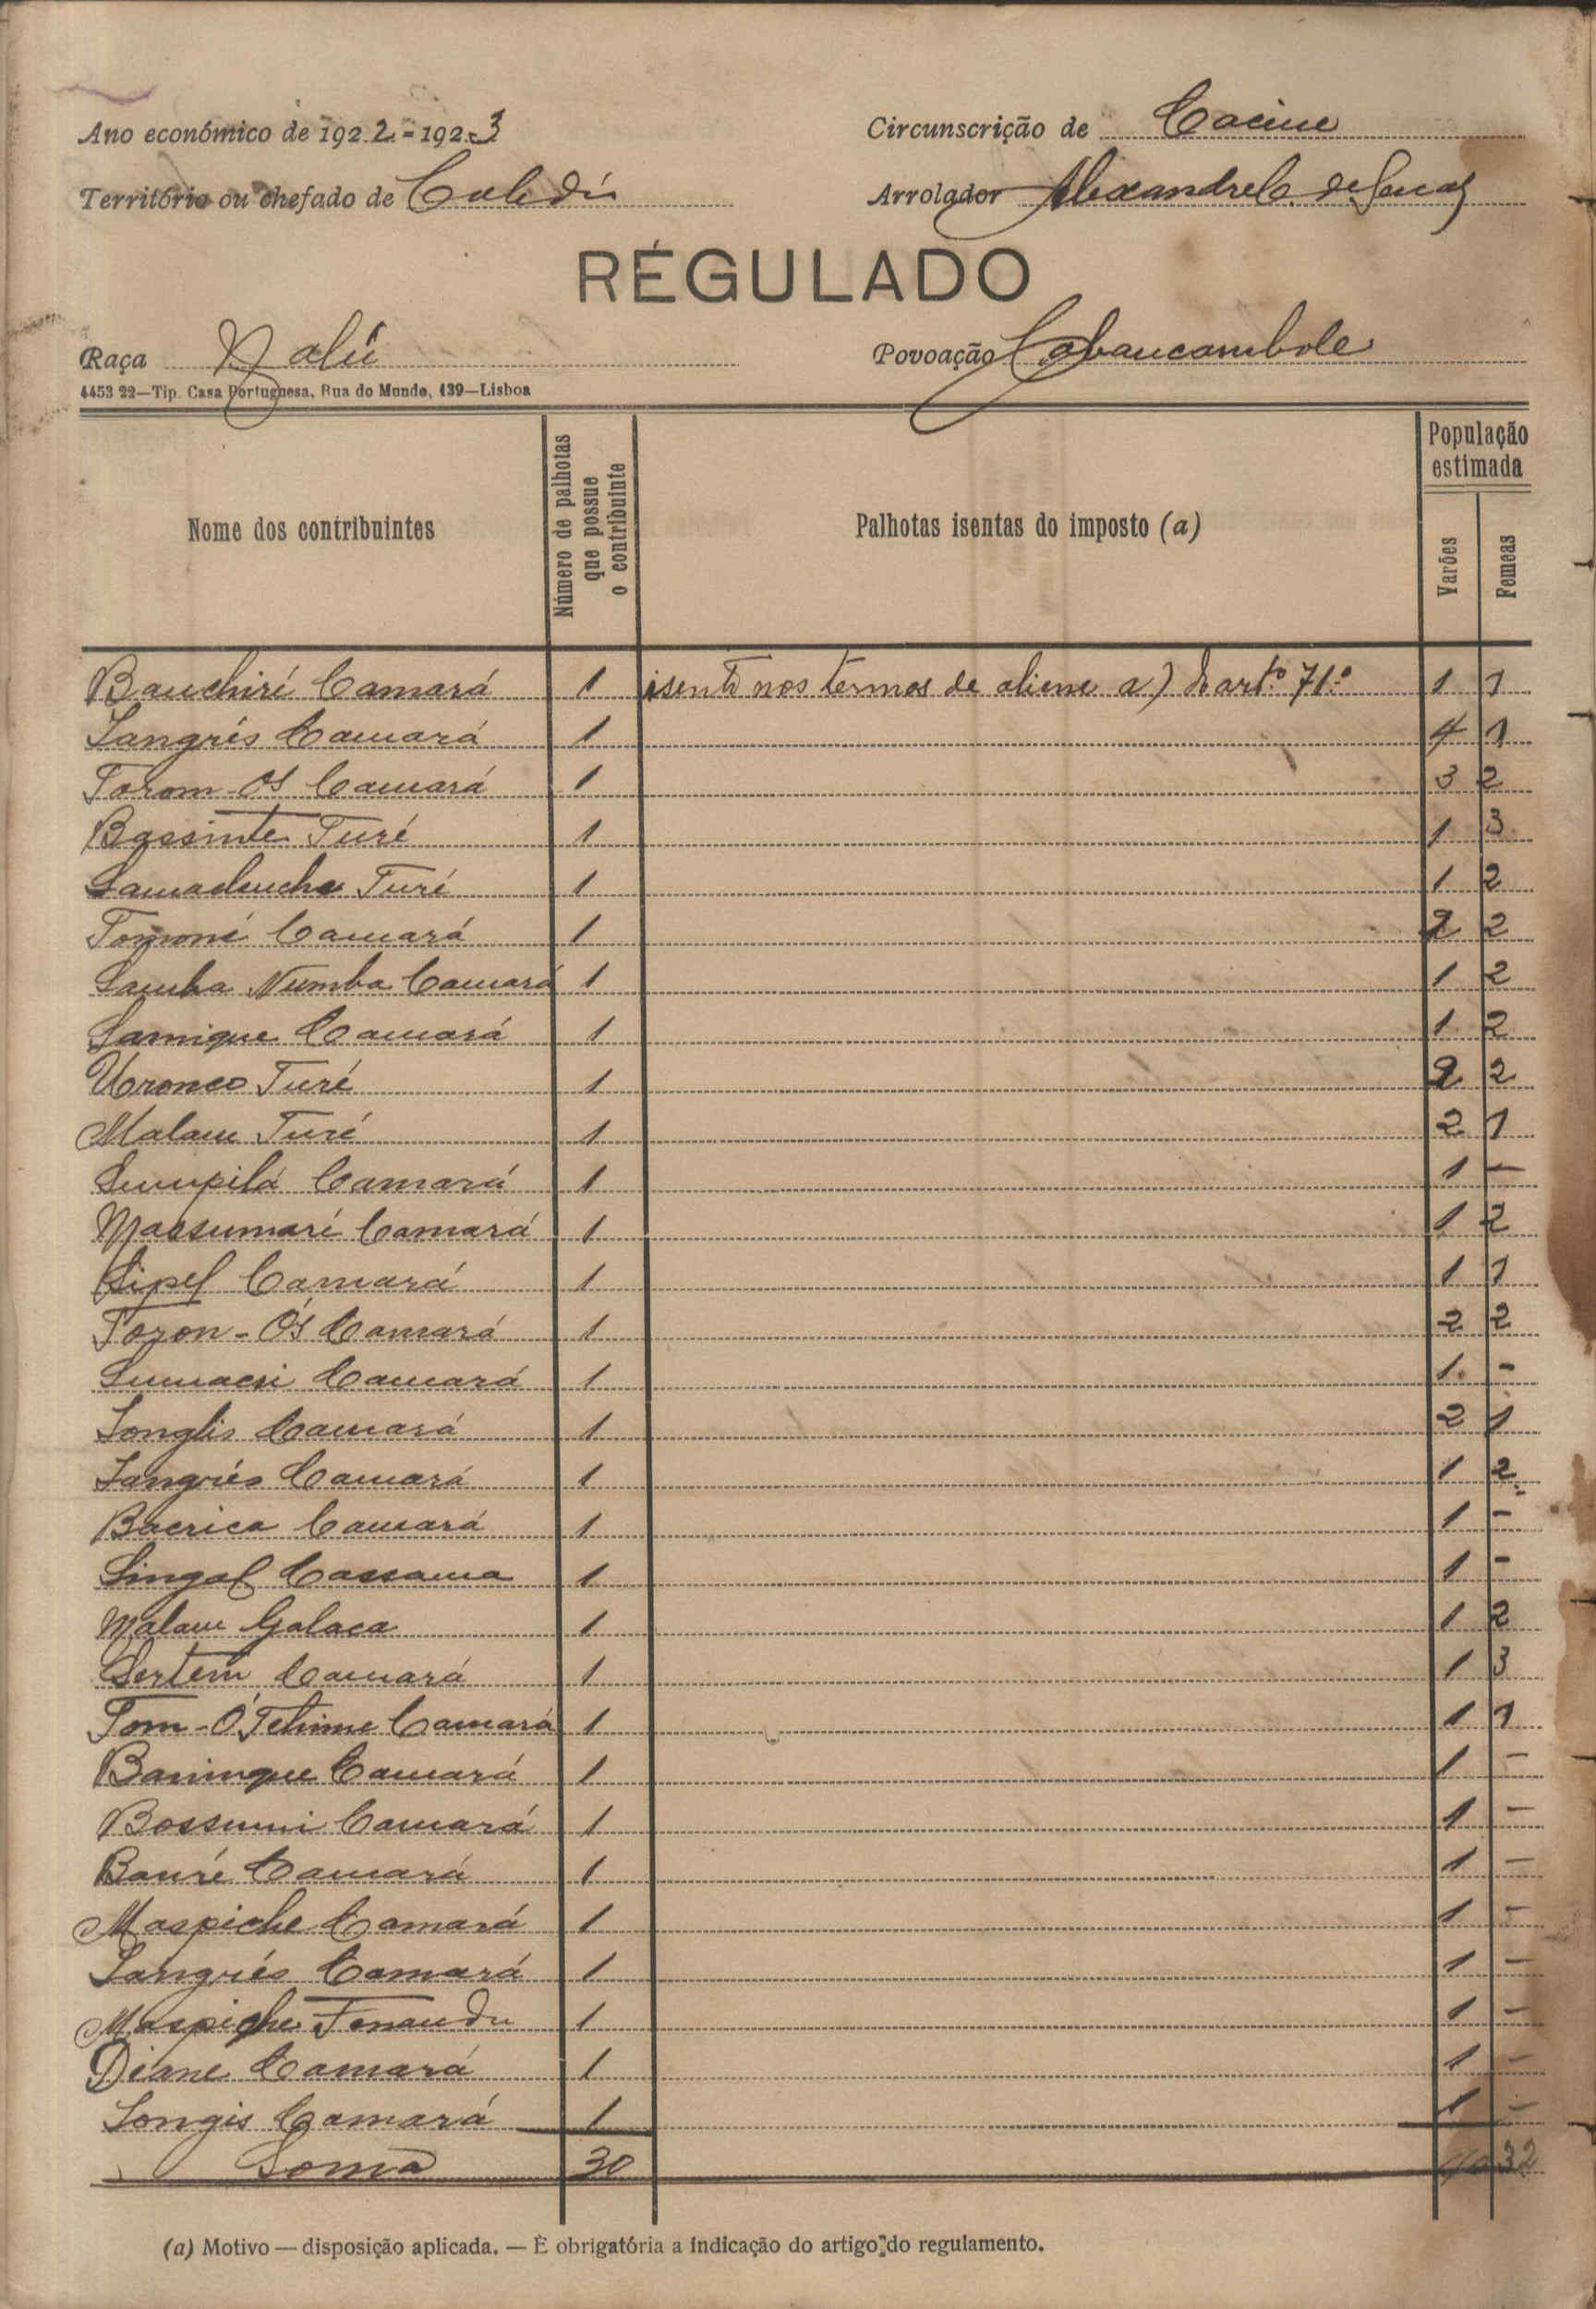 Ano económico de 1922-1923
Circunscrição de Cacine
Território ou chefado de
Arrolador Alexandre C. de
RÉGULADO
Raça Nalú
Povoação Cabancambole
4453 22—Tip. Casa Portuguesa, Rua do Mundo, 139—Lisboa
Nome dos contribuintes
Número de palhotas que possue o contribuinte
Palhotas isentas do imposto (a)
População estimada
Varões
Femeas
Bauchiré Camará 1 isento nos termos de aliene a) do artº 71.º 1 1
Sangrés Camará 1 4 1
Torom-Os Camará 1 3 2
Bassinte Turé 1 1 3
Turé 1 1 2
Tomoné Camará 1 2 2
Samba Numba Camará 1 1 2
Samique Camará 1 1 2
Uronco Turé 1 2 2
Malam Turé 1 2 1
Sumpilá Camará 1 1 —
Massumaré Camará 1 1 2
Sipef Camará 1 1 1
Toron-Ós Camará 1 2 2
Camará 1 1 -
Songlis Camará 1 2 1
Sangrés Camará 1 1 2
Bacrica Camará 1 1 -
Singal Cassama 1 1 -
Malam Galaca 1 1 2
Sertem Camará 1 1 3
Tom-Ó Tchime Camará 1 1 1
Baninque Camará 1 1 —
Bossumi Camará 1 1 —
Bauré Camará 1 1 —
Maspiche Camará 1 1 —
Sangrés Camará 1 1 —
Maspiche 1 1 —
Diane Camará 1 1 —
Songis Camará 1 1 —
Soma 30 40 32
(a) Motivo — disposição aplicada. — É obrigatória a indicação do artigo do regulamento.